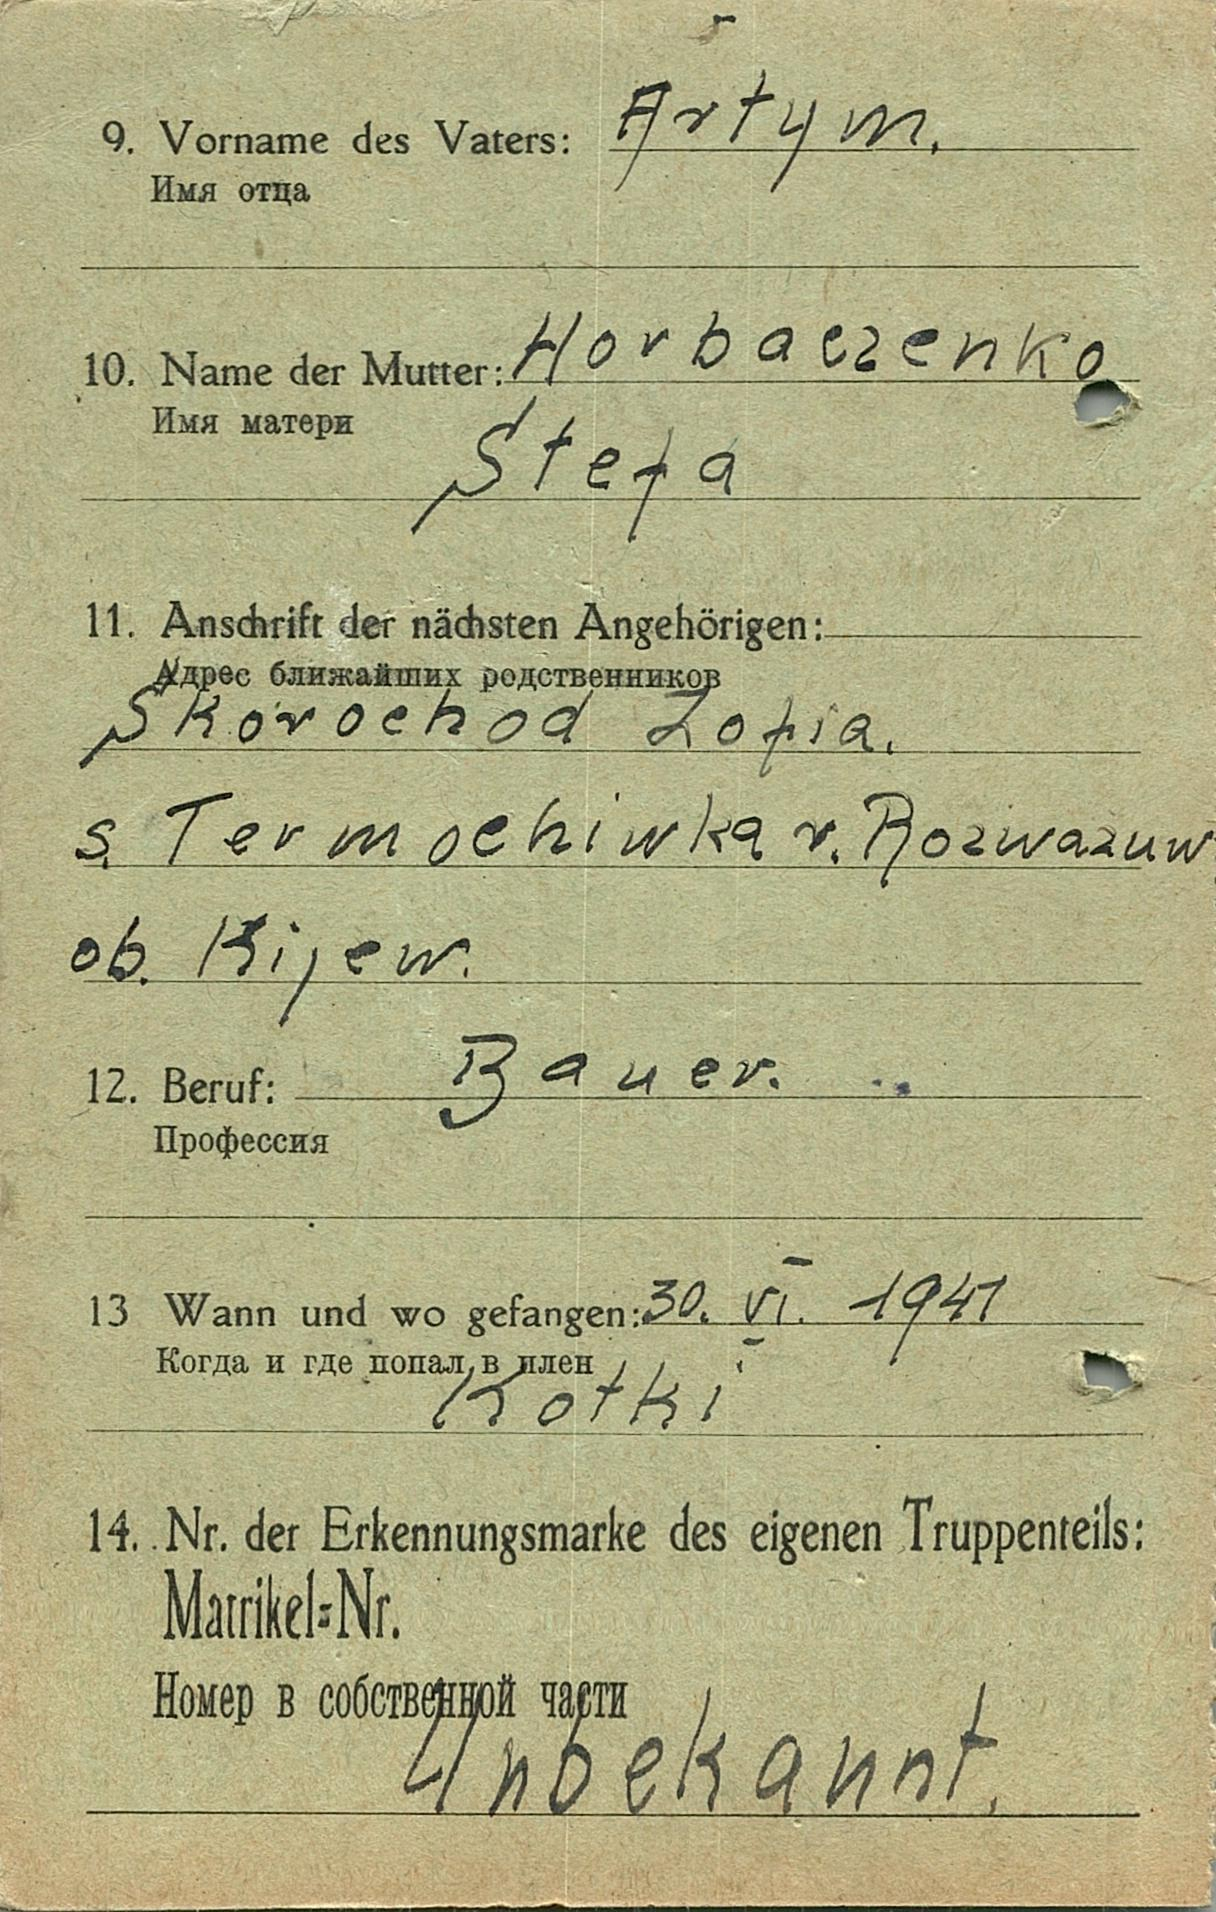 9. Vorname des Vaters: Artym.
Имя отца
10. Name der Mutter: Horbaczenko
Имя матери
Stefa
11. Anschrift der nächsten Angehörigen:
Адрес ближайших родственников
Skorochod Zofia.
s. Termochiwka r. Rozwazuw
ob. Kijew.
12. Beruf: Bauer.
Профессия
13 Wann und wo gefangen: 30. VI. 1941
Когда и где попал в плен
Kotki
14. Nr. der Erkennungsmarke des eigenen Truppenteils:
Matrikel=Nr.
Номер в собственной части
Unbekannt.